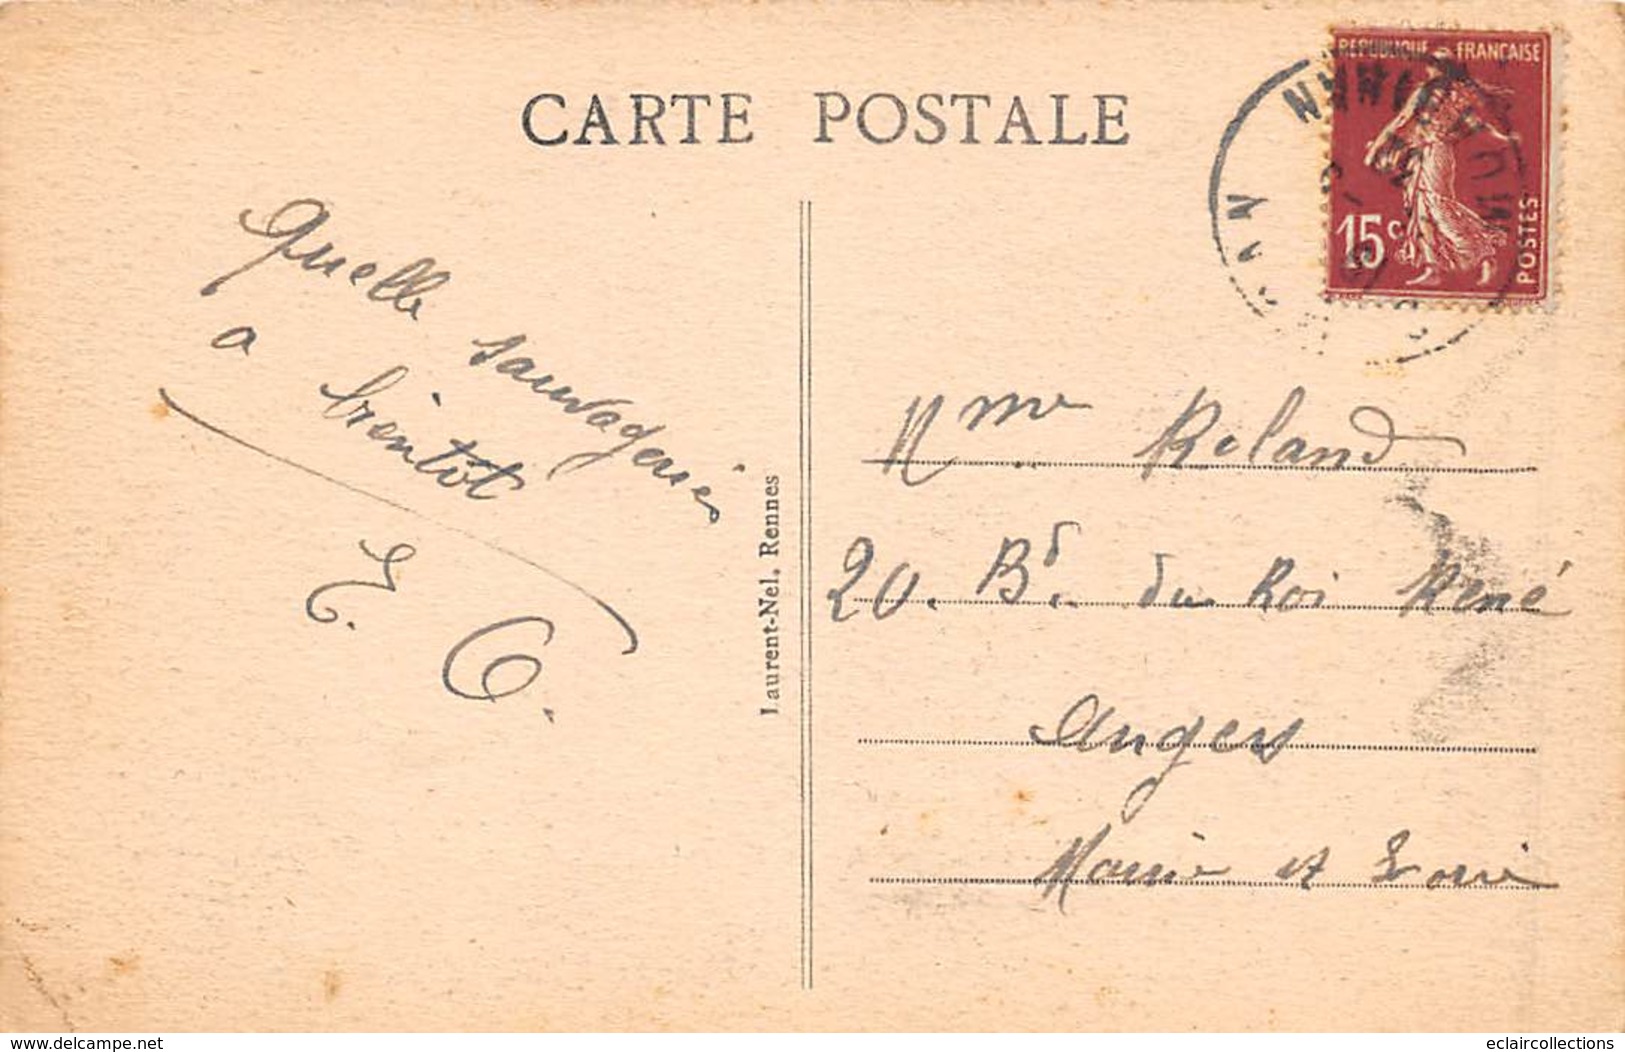 CARTE POSTALE
REPUBLIQUE FRANÇAISE
15c
POSTES
Quelle sauvagerie
a bientôt
E. C.
Laurent-Nel, Rennes
Mme Roland
20. Bd. du Roi René
Angers
Maine et Loire
www.delcampe.net
eclaircollections